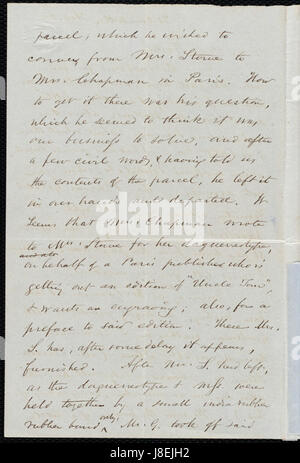 parcel, which he wished to
convey from Mrs. Stowe to
Mrs. Chapman in Paris. How
to get it there was his question,
which he seemed to think it was
our business to solve, and after
a few civil words, & having told us
the contents of the parcel, he left it
in our hands and departed. It
seems that Mrs. Chapman wrote
to Mrs. Stowe for her daguerreotype,
on behalf of a Paris publisher who is
getting out an edition of "Uncle Tom",
& wants an engraving; also, for a
preface to said edition. These Mrs.
S. has, after some delay it appears,
furnished. After Mr. S. had left,
as the daguerreotype & mss. were
held together by a small india rubber
rubber band only, Mr. G. took off said
alamy
Image ID: J8EJH2
www.alamy.com